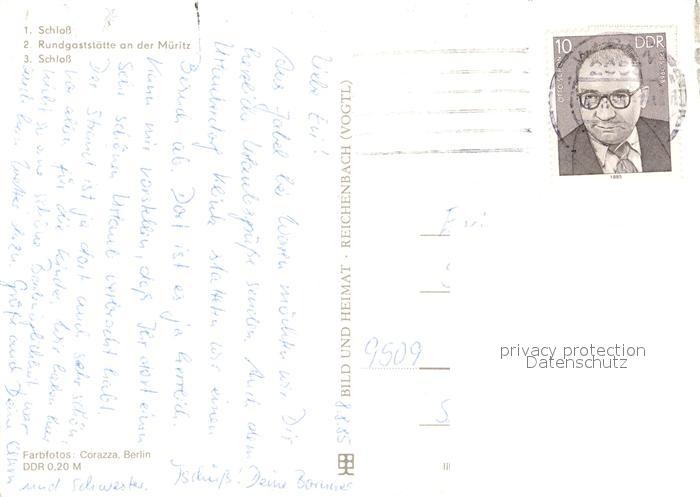 1. Schloß
2. Rundgaststätte an der Müritz
3. Schloß
Liebe Evi!
Aus Jabel bei Waren möchten wir Dir
herzliche Urlaubsgrüße senden. Auch dem
Urlaubstag heute statteten wir einen
Besuch ab. Dort ist es ja herrlich.
Kann mir vorstellen, daß Ihr dort einen
sehr schönen Urlaub verbracht habt.
Der Strand ist ja dort auch sehr schön,
vor allem für die Kinder. Wir haben hier
auch eine schöne Bademöglichkeit
Grüße auch Deine Eltern
und Schwester.
Tschüß! Deine
8.8.85
Farbfotos: Corazza, Berlin
DDR 0,20 M
BILD UND HEIMAT · REICHENBACH (VOGTL)
10 DDR
1985
Evi
9509
privacy protection
Datenschutz